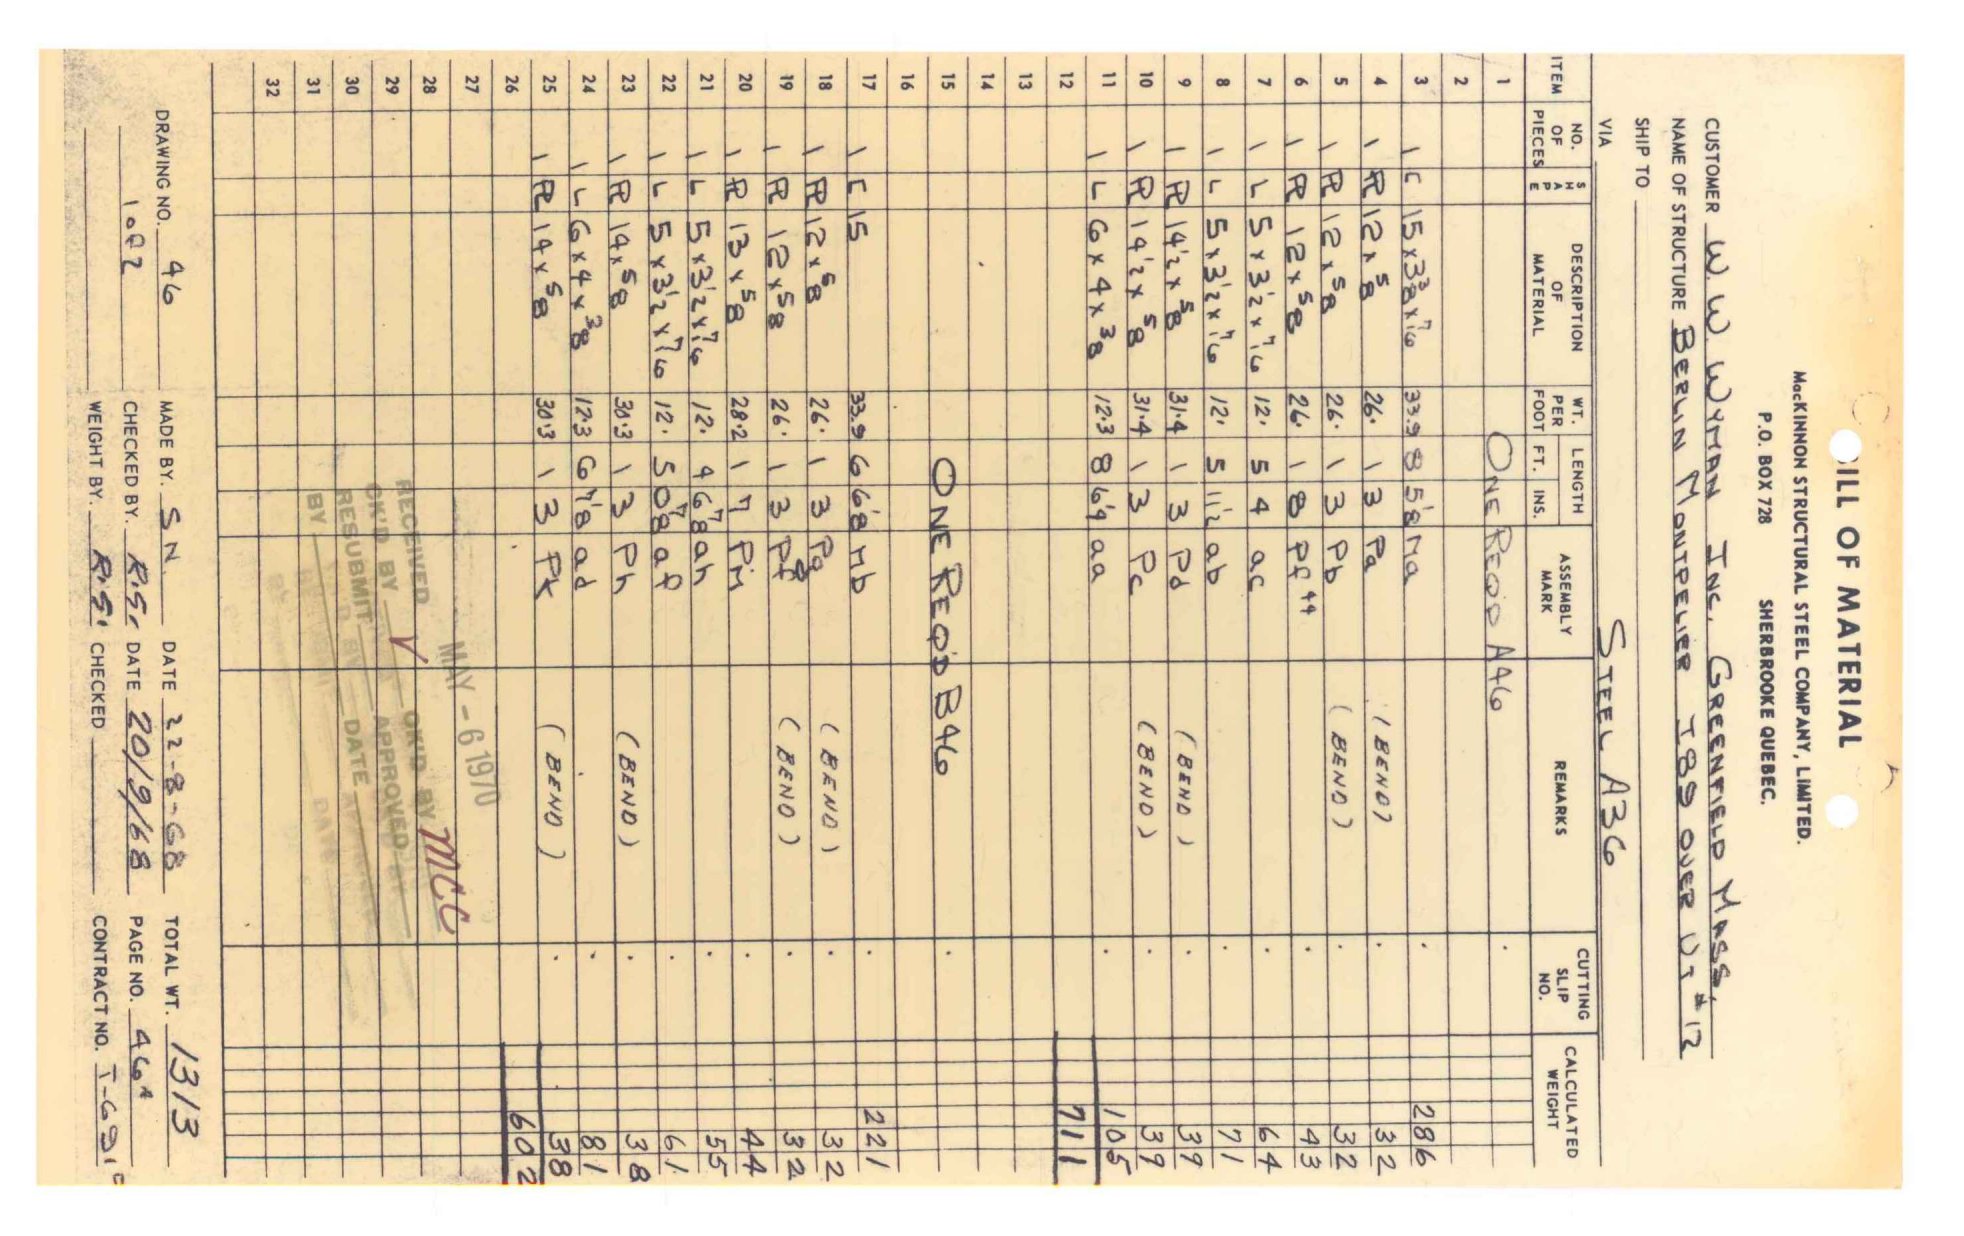 BILL OF MATERIAL
MacKINNON STRUCTURAL STEEL COMPANY, LIMITED.
P.O. BOX 728 SHERBROOKE QUEBEC.
CUSTOMER W W WYMAN INC. GREENFIELD MASS.
NAME OF STRUCTURE BERLIN MONTPELIER I89 OVER VT #12
SHIP TO
VIA STEEL A36
ITEM NO. OF PIECES SHAPE DESCRIPTION OF MATERIAL WT. PER FOOT LENGTH FT. INS. ASSEMBLY MARK REMARKS CUTTING SLIP NO. CALCULATED WEIGHT
1 ONE REQD A46
2
3 1 C 15x3 3/8x7/16 33.9 8 5 1/8 Ma 286
4 1 PL 12x5/8 26. 1 3 Pa (BEND) 32
5 1 PL 12x5/8 26. 1 3 Pb (BEND) 32
6 1 PL 12x5/8 26. 1 8 Pf 44 43
7 1 L 5x3 1/2x7/16 12. 5 4 ac 64
8 1 L 5x3 1/2x7/16 12. 5 11 1/2 ab 71
9 1 PL 14 1/2x5/8 31.4 1 3 Pd (BEND) 39
10 1 PL 14 1/2x5/8 31.4 1 3 Pc (BEND) 39
11 1 L 6x4x3/8 12.3 8 6 1/4 aa 105
12 711
13
14
15 ONE REQD B46
16
17 1 C 15 33.9 6 6 1/8 Mb 221
18 1 PL 12x5/8 26. 1 3 Pg (BEND) 32
19 1 PL 12x5/8 26. 1 3 (BEND) 32
20 1 PL 13x5/8 28.2 1 7 Pm 44
21 1 L 5x3 1/2x7/16 12. 4 6 7/8 ah 55
22 1 L 5x3 1/2x7/16 12. 5 0 7/8 af 61
23 1 PL 14x5/8 30.3 1 3 Ph (BEND) 38
24 1 L 6x4x3/8 12.3 6 7 1/8 ad 81
25 1 PL 14x5/8 30.3 1 3 Pk (BEND) 38
26 602
27
28
29
30
31
32
MAY - 6 1970
RECEIVED OK'D BY MCC
CK'D BY APPROVED BY
RESUBMIT DATE
BY DATE
DRAWING NO. 46 MADE BY. SN. DATE 22-8-68 TOTAL WT. 1313
1 OF 2 CHECKED BY. R.S. DATE 20/9/68 PAGE NO. 46A
WEIGHT BY. R.S. CHECKED CONTRACT NO. T-691